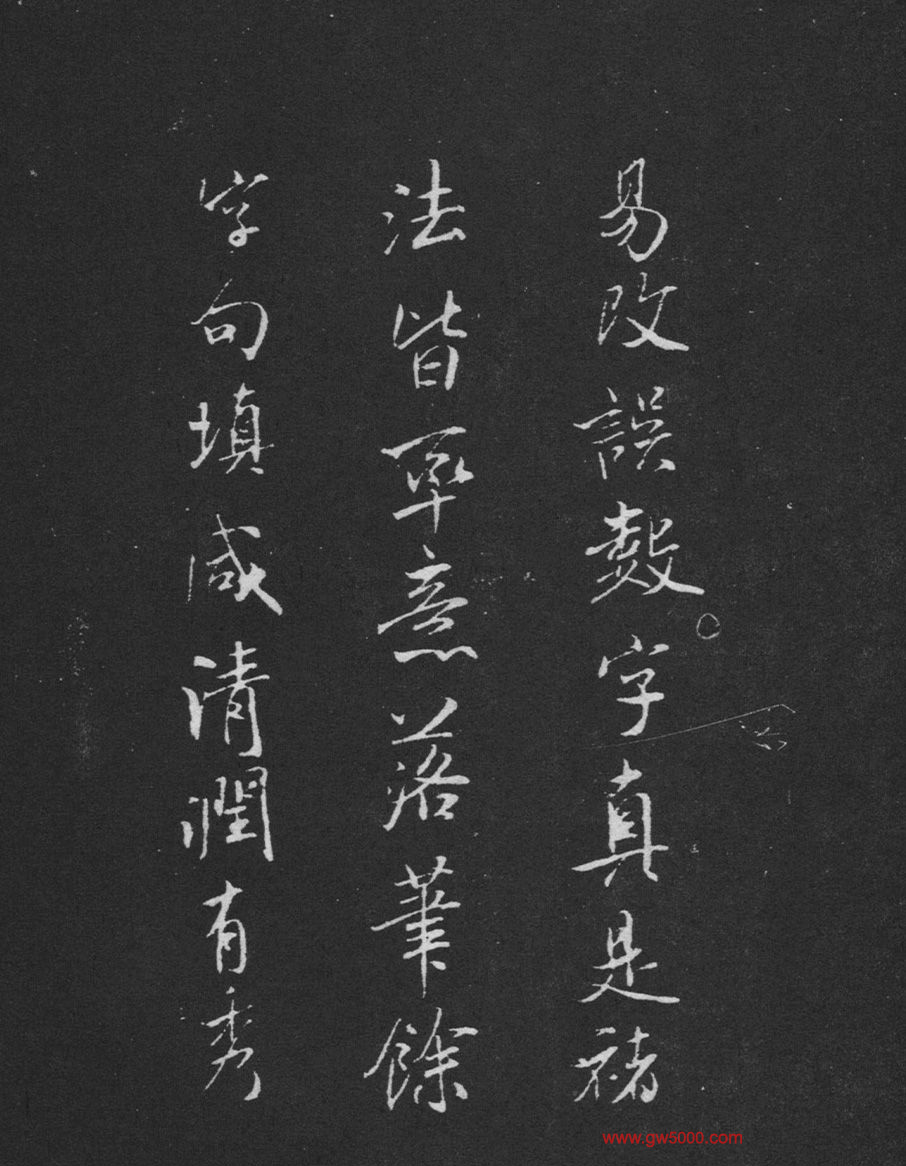 易改誤數字真是褚
法皆率意落筆餘
字句填咸清潤有秀
www.gw5000.com